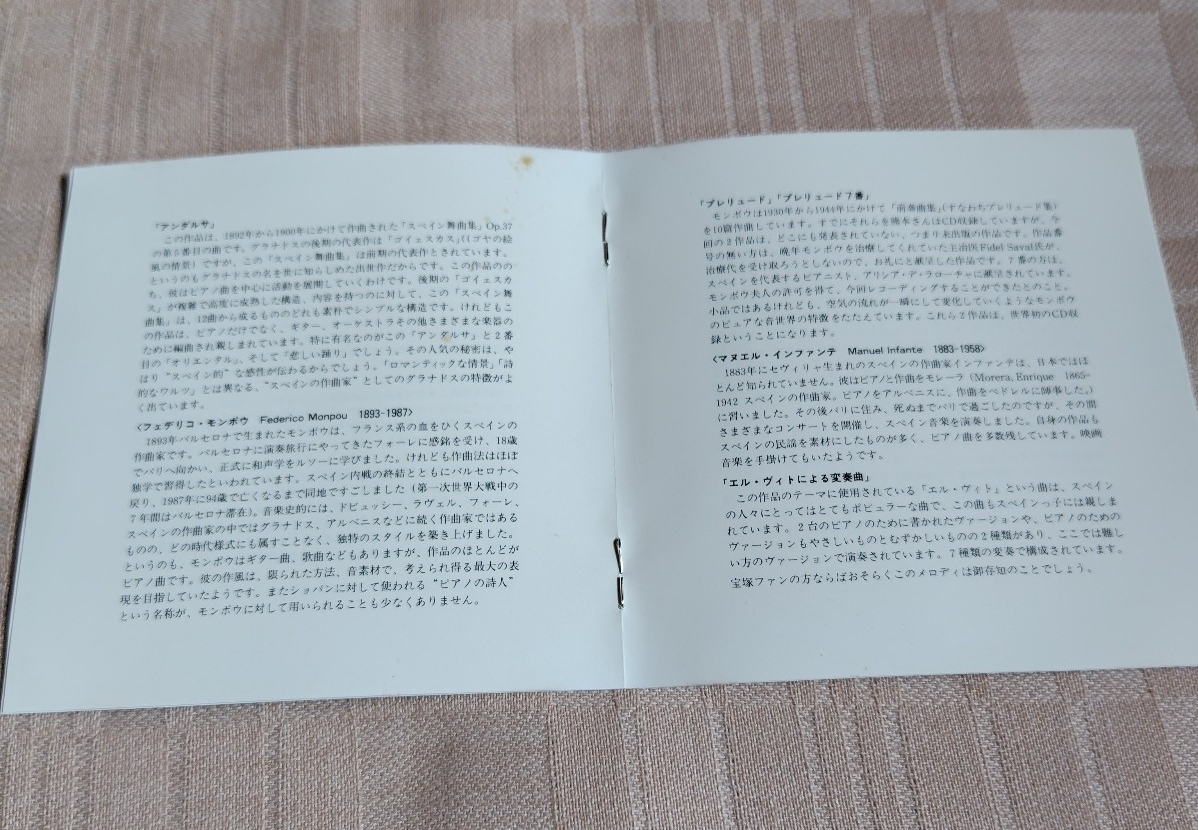 「アンダルサ」
この作品は、1892年から1900年にかけて作曲された「スペイン舞曲集」Op.37
の第5番目の曲です。グラナドスの後期の代表作は「ゴイェスカス」(ゴヤの絵
風の情景)ですが、この「スペイン舞曲集」は前期の代表作とされています。
というのもグラナドスの名を世に知らしめた出世作だからです。この作品のの
ち、彼はピアノ曲を中心に活動を展開していくわけです。後期の「ゴイェスカ
ス」が複雑で高度に成熟した構造、内容を持つのに対して、この「スペイン舞
曲集」は、12曲から成るもののどれも素朴でシンプルな構造です。けれどもこ
の作品は、ピアノだけでなく、ギター、オーケストラその他さまざまな楽器の
ために編曲され親しまれています。特に有名なのがこの「アンダルサ」と2番
目の「オリエンタル」、そして「悲しい踊り」でしょう。その人気の秘密は、や
はり“スペイン的”な感性が伝わるからでしょう。「ロマンティックな情景」「詩
的なワルツ」とは異なる、“スペインの作曲家”としてのグラナドスの特徴がよ
く出ています。
〈フェデリコ・モンポウ Federico Monpou 1893-1987〉
1893年バルセロナで生まれたモンポウは、フランス系の血をひくスペインの
作曲家です。バルセロナに演奏旅行にやってきたフォーレに感銘を受け、18歳
でパリへ向かい、正式に和声学をルソーに学びました。けれども作曲法はほぼ
独学で習得したといわれています。スペイン内戦の終結とともにバルセロナへ
戻り、1987年に94歳で亡くなるまで同地ですごしました(第一次世界大戦中の
7年間はバルセロナ滞在)。音楽史的には、ドビュッシー、ラヴェル、フォーレ、
スペインの作曲家の中ではグラナドス、アルベニスなどに続く作曲家ではある
ものの、どの時代様式にも属すことなく、独特のスタイルを築き上げました。
というのも、モンポウはギター曲、歌曲などもありますが、作品のほとんどが
ピアノ曲です。彼の作風は、限られた方法、音素材で、考えられ得る最大の表
現を目指していたようです。またショパンに対して使われる“ピアノの詩人”
という名称が、モンポウに対して用いられることも少なくありません。
「プレリュード」「プレリュード7番」
モンポウは1930年から1944年にかけて「前奏曲集」(すなわちプレリュード集)
を10篇作曲しています。すでにそれらを熊本さんはCD収録していますが、今
回の2作品は、どこにも発表されていない、つまり未出版の作品です。作品番
号の無い方は、晩年モンポウを治療してくれていた主治医Fidel Saval氏が、
治療代を受け取ろうとしないので、お礼にと献呈した作品です。7番の方は、
スペインを代表するピアニスト、アリシア・デ・ラローチャに献呈されています。
モンポウ夫人の許可を得て、今回レコーディングすることができたとのこと。
小品ではあるけれども、空気の流れが一瞬にして変化していくようなモンポウ
のピュアな音世界の特徴をたたえています。これら2作品は、世界初のCD収
録ということになります。
〈マヌエル・インファンテ Manuel Infante 1883-1958〉
1883年にセヴィリャ生まれのスペインの作曲家インファンテは、日本ではほ
とんど知られていません。彼はピアノと作曲をモレーラ(Morera, Enrique 1865-
1942 スペインの作曲家。ピアノをアルベニスに、作曲をペドレルに師事した。)
に習いました。その後パリに住み、死ぬまでパリで過ごしたのですが、その間
さまざまなコンサートを開催し、スペイン音楽を演奏しました。自身の作品も
スペインの民謡を素材にしたものが多く、ピアノ曲を多数残しています。映画
音楽を手掛けてもいたようです。
「エル・ヴィトによる変奏曲」
この作品のテーマに使用されている「エル・ヴィト」という曲は、スペイン
の人々にとってはとてもポピュラーな曲で、この曲もスペインっ子には親しま
れています。2台のピアノのために書かれたヴァージョンや、ピアノのための
ヴァージョンもやさしいものとむずかしいものの2種類があり、ここでは難し
い方のヴァージョンで演奏されています。7種類の変奏で構成されています。
宝塚ファンの方ならばおそらくこのメロディは御存知のことでしょう。